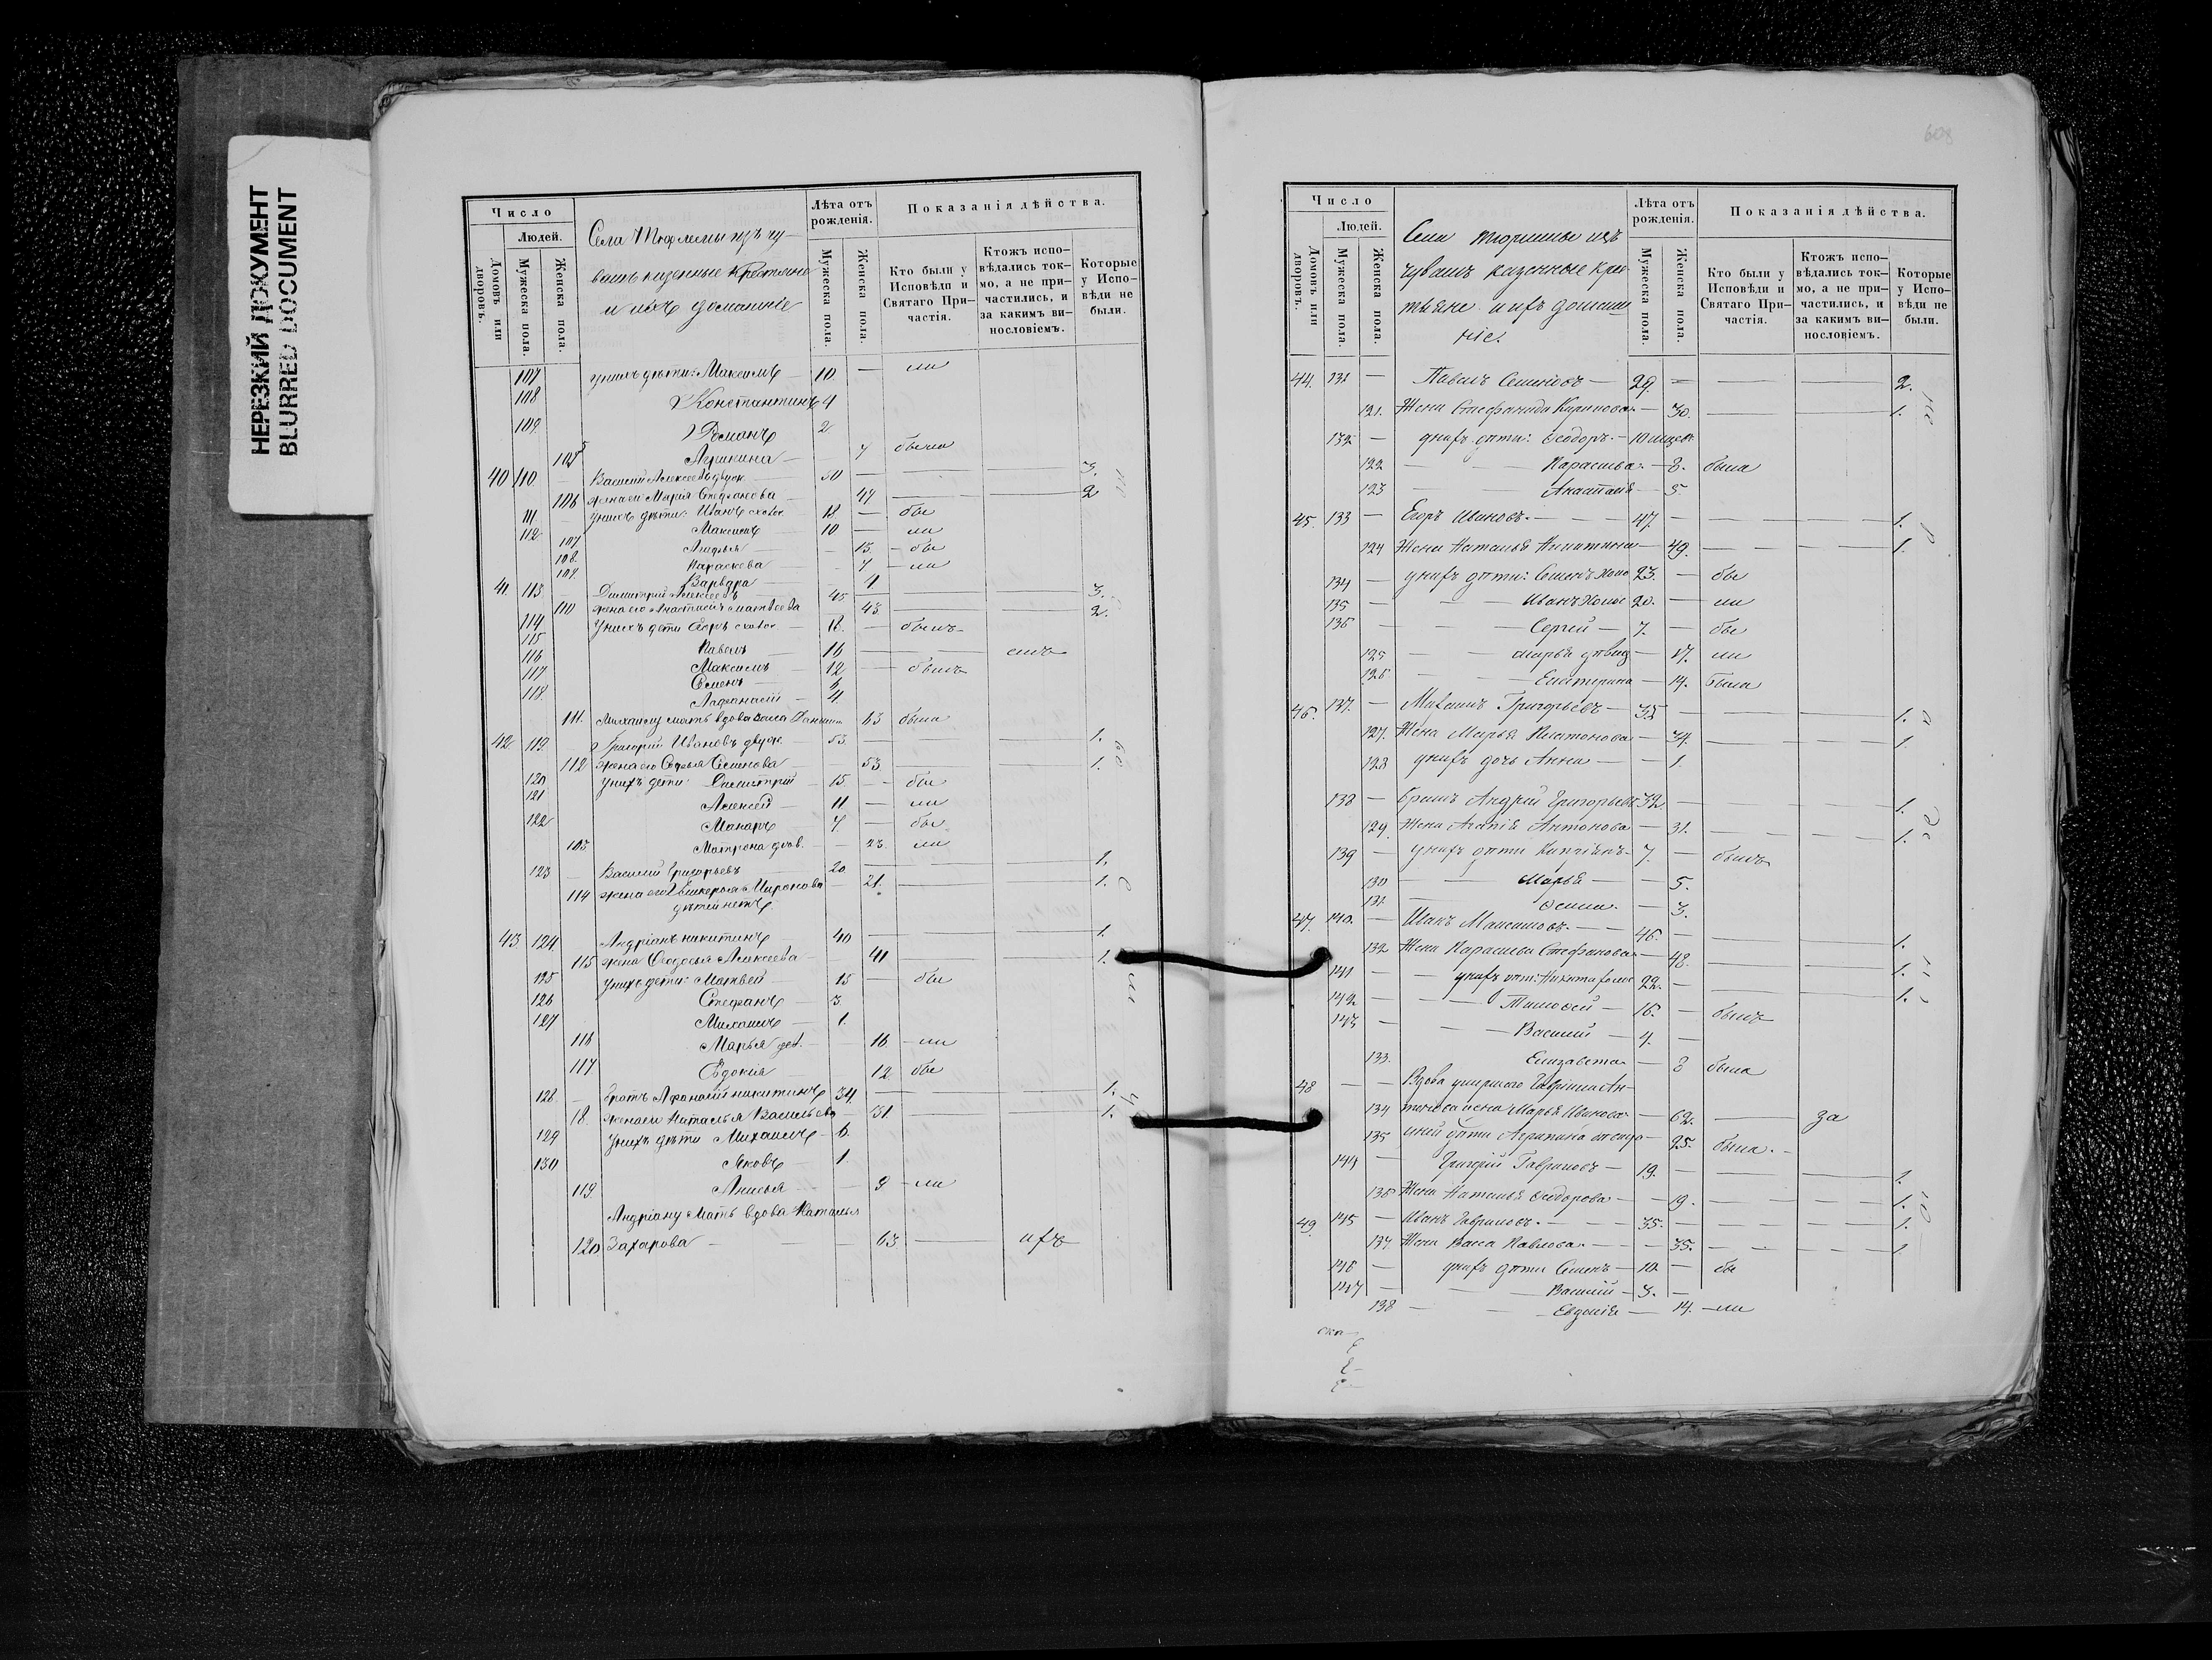 НЕРЕЗКИЙ ДОКУМЕНТ
BLURRED DOCUMENT
Число
Людей.
Домовъ или дворовъ.
Мужеска пола.
Женска пола.
Села изъ чу-
вашъ казенные крестьяне
и ихъ домашніе
Лѣта отъ рожденія.
Мужеска пола.
Женска пола.
Показанія дѣйства.
Кто были у Исповѣди и Святаго При-частія.
Ктожъ испо-вѣдались ток-мо, а не при-частились, и за какимъ ви-нословіемъ.
Которые у Испо-вѣди не были.
107 у нихъ дѣти: Максимъ 10 — ли
108 Константинъ 4
109 Романъ 2
105 7 была
40 110 Василий Алексеевъ 50 — 3.
106 жена его Мария Стефанова 47 — 2
111 у нихъ дѣти: Иванъ 18 — бы
112 Максимъ 10 — ли
107 15 — бы
108. Параскева 7 — ли
109. Варвара 1
41 113 Димитрий Алексеевъ 45 — 3.
110 жена его Анастасия Матвеева 43 — 2.
114 У нихъ дети 18 — былъ
115 Павелъ 16 — силъ
116 Максимъ 12 — былъ
117 Семенъ 6
118 Афанасий 4
111. мать вдова Васса 63 была
42 119 Григорий Ивановъ 53 — 1.
112 жена его Софья Семенова 53 — 1.
120 У нихъ дети Димитрий 15 — бы
121 Алексей 11 — ли
122 Макаръ 7 — бы
113 Матрона 23 ли
123 Василий Григорьевъ 20 — 1.
114 жена его Гликерья Миронова 21 — 1.
детей нетъ
43 124 Андріанъ Никитинъ 40 — 1.
115 жена Феодосья Алексеева 41 — 1.
125 У нихъ дети: Матвей 15 — бы
126 Стефанъ 3
127 Михаилъ 1.
116 Марья 16 — ли
117 Евдокия 12 бы
128 Братъ Афонасий Никитинъ 34 — 1.
18. жена его Наталья Васильева 31 — 1.
129 У нихъ дѣти Михаилъ 6.
130 Яковъ 1
119 Анисья 8 — ли
Андріану Мать вдова Наталья
120 Захарова — 63 — ихъ
608
Число
Людей.
Домовъ или дворовъ.
Мужеска пола.
Женска пола.
Села изъ
чувашъ казенные крес
тьяне и ихъ домаш
ніе.
Лѣта отъ рожденія.
Мужеска пола.
Женска пола.
Показанія дѣйства.
Кто были у Исповѣди и Святаго При-частія.
Ктожъ испо-вѣдались ток-мо, а не при-частились, и за какимъ ви-нословіемъ.
Которые у Испо-вѣди не были.
44. 131 — Павелъ Семеновъ — 29. — 2.
121. Жена Стефанида Кирилова — 30. — 1.
132 — у нихъ дѣти: Ѳеодоръ — 10
122 Параскева — 8. была
123 Анастасія — 5.
45. 133 — Егоръ Ивановъ — 47. — 1.
124 Жена Наталья Никитина — 49. — 1.
134 — у нихъ дѣти: Семенъ 23. — бы
135 — Иванъ 20. — ли
136 — Сергей — 7. — бы
125 Марья 17. ли
126 Екатерина — 14. была
46. 137. — Михаилъ Григорьевъ — 35 — 1.
127. Жена Марья Платонова — 34. — 1.
128 у нихъ дочь Анна — 1.
138 — братъ Андрей Григорьевъ 32 — 1.
129. Жена Агапія Антонова — 31. — 1.
139 — у нихъ дѣти 7. — былъ
130 Марья — 5.
131. — 3.
47. 140. — Иванъ Максимовъ — 46. — 1.
132 Жена Параскева Стефанова — 48. — 1.
141 — у нихъ дѣти: Никита 22. — 1.
142 — Тимоѳей — 16. — былъ
143 — Василий — 4. —
133. Елизавета — 8 была
48 — Вдова умершаго Гавриила Ан-
134 жена Марья Иванова — 62. — за
135 у ней дѣти Агрипина 25. была.
144 — Григорій Гавриловъ — 19. — 1.
136 Жена Наталья Ѳедорова — 19. — 1.
49. 145 — Иванъ Гавриловъ — 35. — 1.
137 Жена Васса Павлова — 35. — 1
146 — у нихъ дѣти Семенъ — 10. — бы
147 — Василий — 3. —
138 — Евдокія — 14. — ли